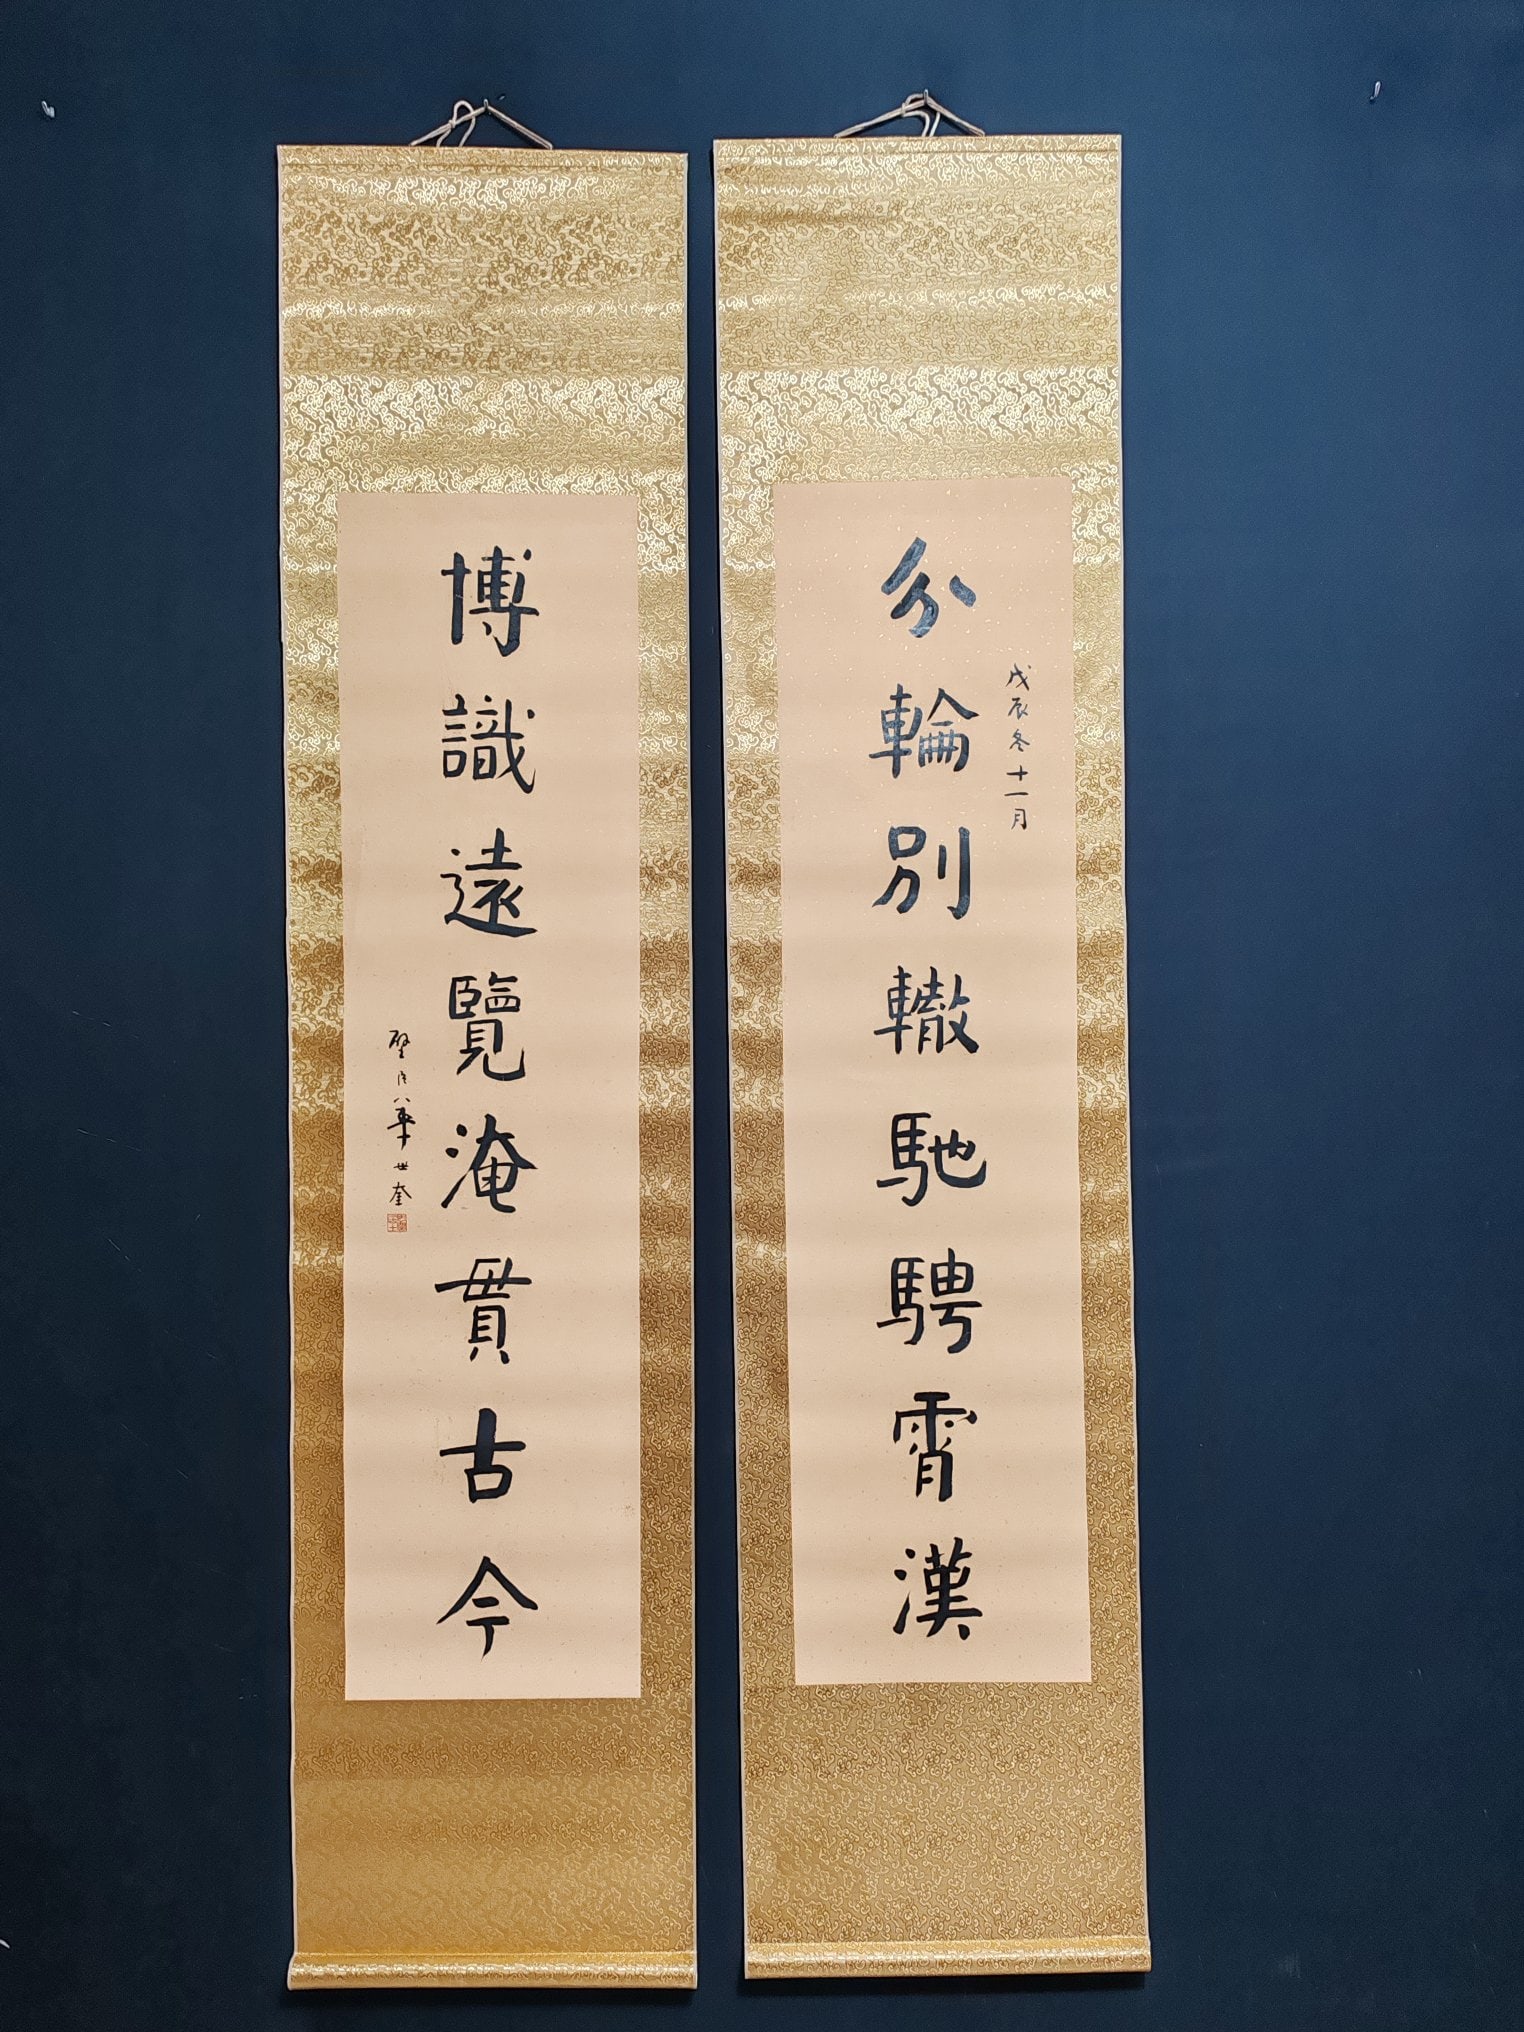 分輪別轍馳騁霄漢
戊辰冬十一月
博識遠覽淹貫古今
華世奎